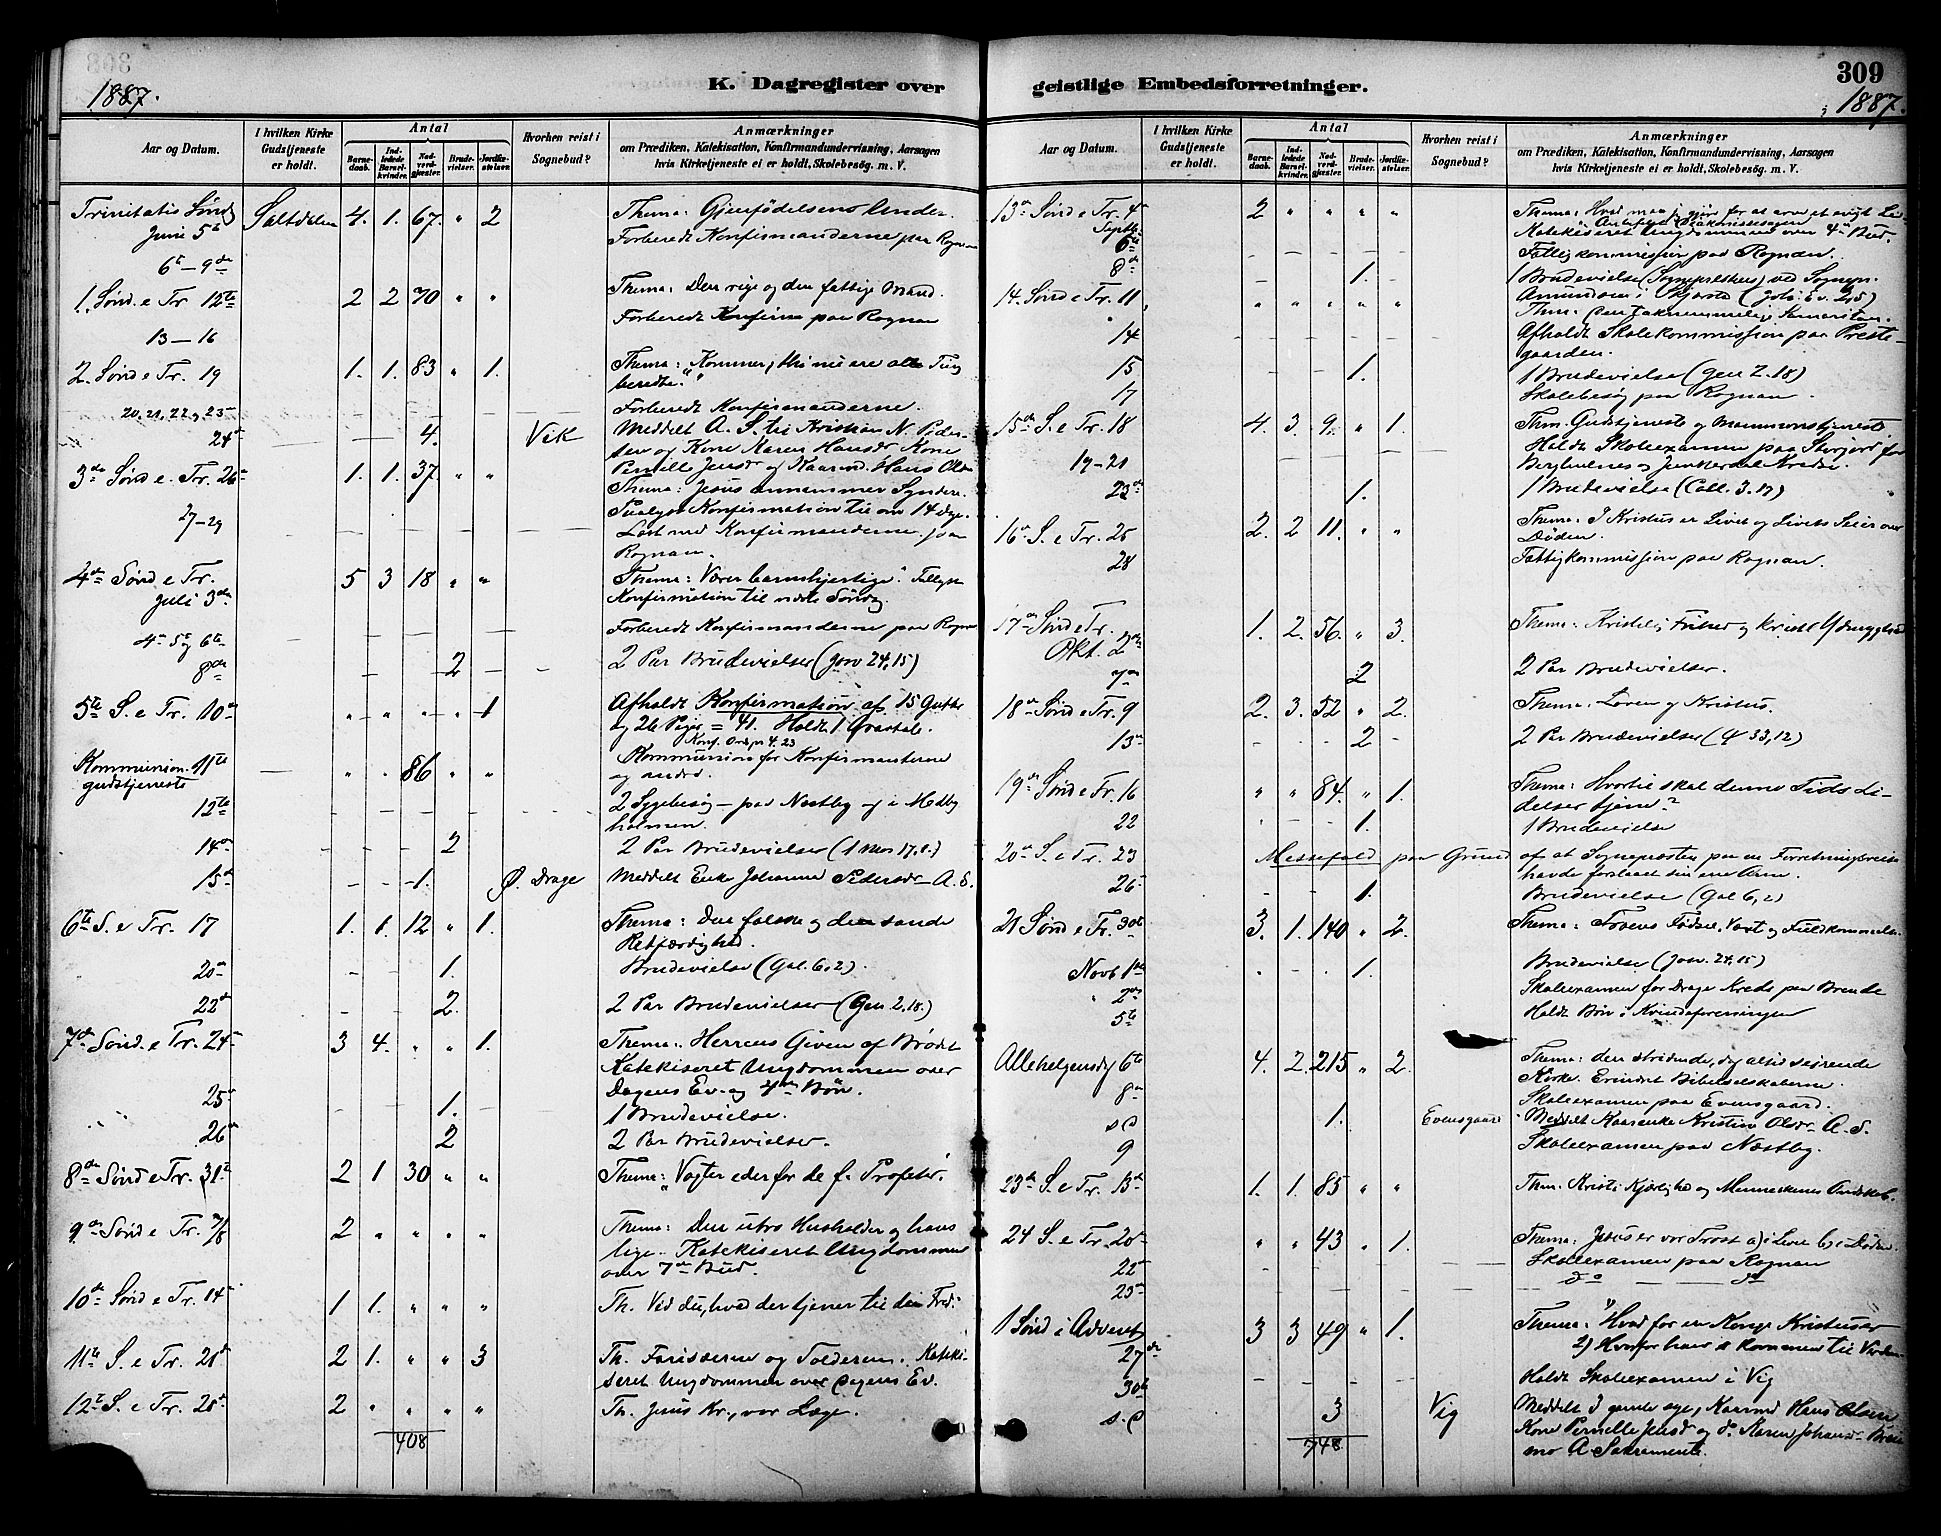 1887.
K. Dagregister over
Aar og Datum.
I hvilken Kirke Gudstjeneste er holdt.
Antal
Barnedaab.
Indledede Barselkvinder.
Nadverdgjæster.
Brudevielser.
Jordfæstelser.
Hvorhen reist i Sognebud?
Anmærkninger
om Prædiken, Katekisation, Konfirmandundervisning, Aarsagen
hvis Kirketjeneste ei er holdt, Skolebesøg. m. V.
Trinitatis Sønd. Saltdalen 4. 1. 67. " 2 Thema: Gjenfødelsens Under.
Juni 5te Forberedt Konfirmanderne paa Rognan
6te – 9de
1. Sønd. e Tr. 12te 2 2 70 " " Thema: Den rige og den fattige Mand.
Forberedt Konfirm paa Rognan
13 – 16
2. Sønd e Tr. 19 1. 1. 83 " 1. Thema: "Kommer, thi nu ere alle Ting
beredte."
20, 21, 22 og 23 Forberedt Konfirmanderne.
24de 4. Vik Meddelt A. S. til Kristian N. Peder-
sen og Kone Maren Hansdr Kone
Pernelle Jensdr og Kaarmd. Hans Ols
3de Sønd e. Tr. 26te 1. 1. 37. " " Thema: Jesus annammer Syndere.
Konfirmation til om 14 dage.
27–29 Læst med Konfirmanderne paa
Rognan.
4de Sønd e Tr. 5 3 18 " " Thema: Værer barmhjertige.
Juli 3de Konfirmation til næste Søndg.
4de 5te og 6te Forberedt Konfirmanderne paa Rognan
8de 2 2 Par Brudevielser (Josv 24, 15)
5te S. e Tr. 10de " " " " 1 Afholdt Konfirmation af 15 Gutter
og 26 Piger = 41. Holdt 1 Præstale.
Konf. Ordspr 4. 23
Kommunion 11te " " 86 " " Kommunion for Konfirmanterne
gudstjeneste og andre.
12te 2 Sygebesøg – paa Nestby og i Medby
holmen.
14de 2 2 Par Brudevielser (1 Mos 17, 1.)
15de 1. Ø. Drage Meddelt Enke Johanna Pedersdr A. S.
6te S. e Tr. 17 1. 1. 12 " 1. Thema: Den falske og den sande
Retfærdighed.
20de 1. Brudevielse (Gal. 6, 2).
22de 2. 2 Par Brudevielser (Gen 2, 18.)
7de Sønd. e Tr. 24de 3 4. " " 1. Thema: Herrens Given af Brødet
Katekiseret Ungdommen over
Dagens Ev. og 4de Bøn.
25de 1. 1 Brudevielse.
26de 2 2 Par Brudevielser.
8de Sønd e Tr. 31te 2 1 30 " " Thema: "Vogter eder for de f. Profeter.
9de Sønd e Tr. 7/8 2 " " " " Thema: Den utro Husholder og hans
lige. Katekiseret Ungdommen
over 7de Bud.
10de Sønd e Tr. 14de 1 1. " " " Th. Ved du, hvad der tjener til din Fred.
11te S. e Tr. 21de 2 1. " " 3 Th. Farisæeren og Tolderen. Kateki-
seret Ungdommen over Dagens Ev.
12te S. e Tr. 28de 2 " " " " Th. Jesus Kr., vor Læge.
408
geistlige Embedsforretninger.
309
1887.
Aar og Datum.
I hvilken Kirke Gudstjeneste er holdt.
Antal
Barnedaab.
Indledede Barselkvinder.
Nadverdgjæster.
Brudevielser.
Jordfæstelser.
Hvorhen reist i Sognebud?
Anmærkninger
om Prædiken, Katekisation, Konfirmandundervisning, Aarsagen
hvis Kirketjeneste ei er holdt, Skolebesøg. m. V.
13de Sønd e Tr. 4de 2 " " " " Thema: Hvad maa jeg gjøre for at arve et evigt Liv
Septbr. Katekiseret Ungdommen over 4de Bud.
6te Fattigkommission paa Rognan.
8de 1. 1 Brudevielse
14. Sønd e Tr. 11 " " " " " Them. Den taknemmelige Samaritan.
14 Afholdt Skolekommission paa Preste-
gaarden.
15 1. 1 Brudevielse (Gen 2. 18)
17 Skolebesøg paa Rognan.
15de S. e Tr. 18 4. 3. 9. " 1. Them. Gudstjeneste og Mammonstjeneste
19–21 Holdt Skoleexamen paa Storjord for
Berghulnes og Junkerdal Kredse.
23de 1. 1 Brudevielse (Coll. 3. 17)
16de S. e Tr. 25 2. 2 11. " " Thema: I Kristus er Livet og Livets Seier over
Døden.
28 Fattigkommission paa Rognan.
17de Sønd e Tr. 1. 2. 56. " 3. Thema: Kristelig Frihed og kristl Ydmyghed
Okt. 2den
7de 2 2 Par Brudevielser.
18de Sønd e Tr. 9 2. 3. 52 " 2. Thema: Loven og Kristus.
13de 2 2 Par Brudevielser (ψ 33, 12)
19de Sønd e Tr. 16 " " 84. " 1. Thema: Hvortil skal denne Tids Li-
delser tjene?
22 1. 1 Brudevielse
20de S. e Tr. 23 Messefald paa Grund af at Sognepræsten paa en Forretningsreise
havde forslaaet sin ene Arm.
26de 1. Brudevielse (Gal 6, 2)
21 Sønd e Tr. 30te 3. 1. 140 " 2. Thema: Troens Fødsel, Vext og Fuldkommelse
Novb 1ste 1. Brudevielse (Josv. 24, 15)
" 2den Skoleexamen for Drage Kreds paa Brende
5te Holdt Bøn i Kvindeforeningen
Allehelgensdg 6te 4. 2. 215 " 2. Thema: den stridende, dog altid seirende
Kirke. Erindret Bibelselskaberne.
8de Skoleexamen paa Evensgaard.
s. D 1. Evensgaard Meddelt Kaarenke Kristine Olsdr A. S.
9 Skoleexamen paa Næstby.
23de S. e Tr. 13de 1. 1. 85 " " Them. Kristi Kjærlighed og Menneskenes Ondskab.
24 S. e Tr. 20de " " 43 " 1. Thema: Jesus er vor Trost a) i Livet b) i Døden
22de Skoleexamen paa Rognan
23de do — do
1 Sønd i Advent 3 3 49 " 1. Thema: 1) Hvad for en Konge Kristus er
27de 2) Hvorfor han er kommen til Verden
30te Holdt Skoleexamen i Vig
s. D 3 Vig Meddelt 3 gamle syge, Kaarmd Hans Olsen
Kone Pernelle Jensd og do Karen Johansdr
A. Sakramente.
748